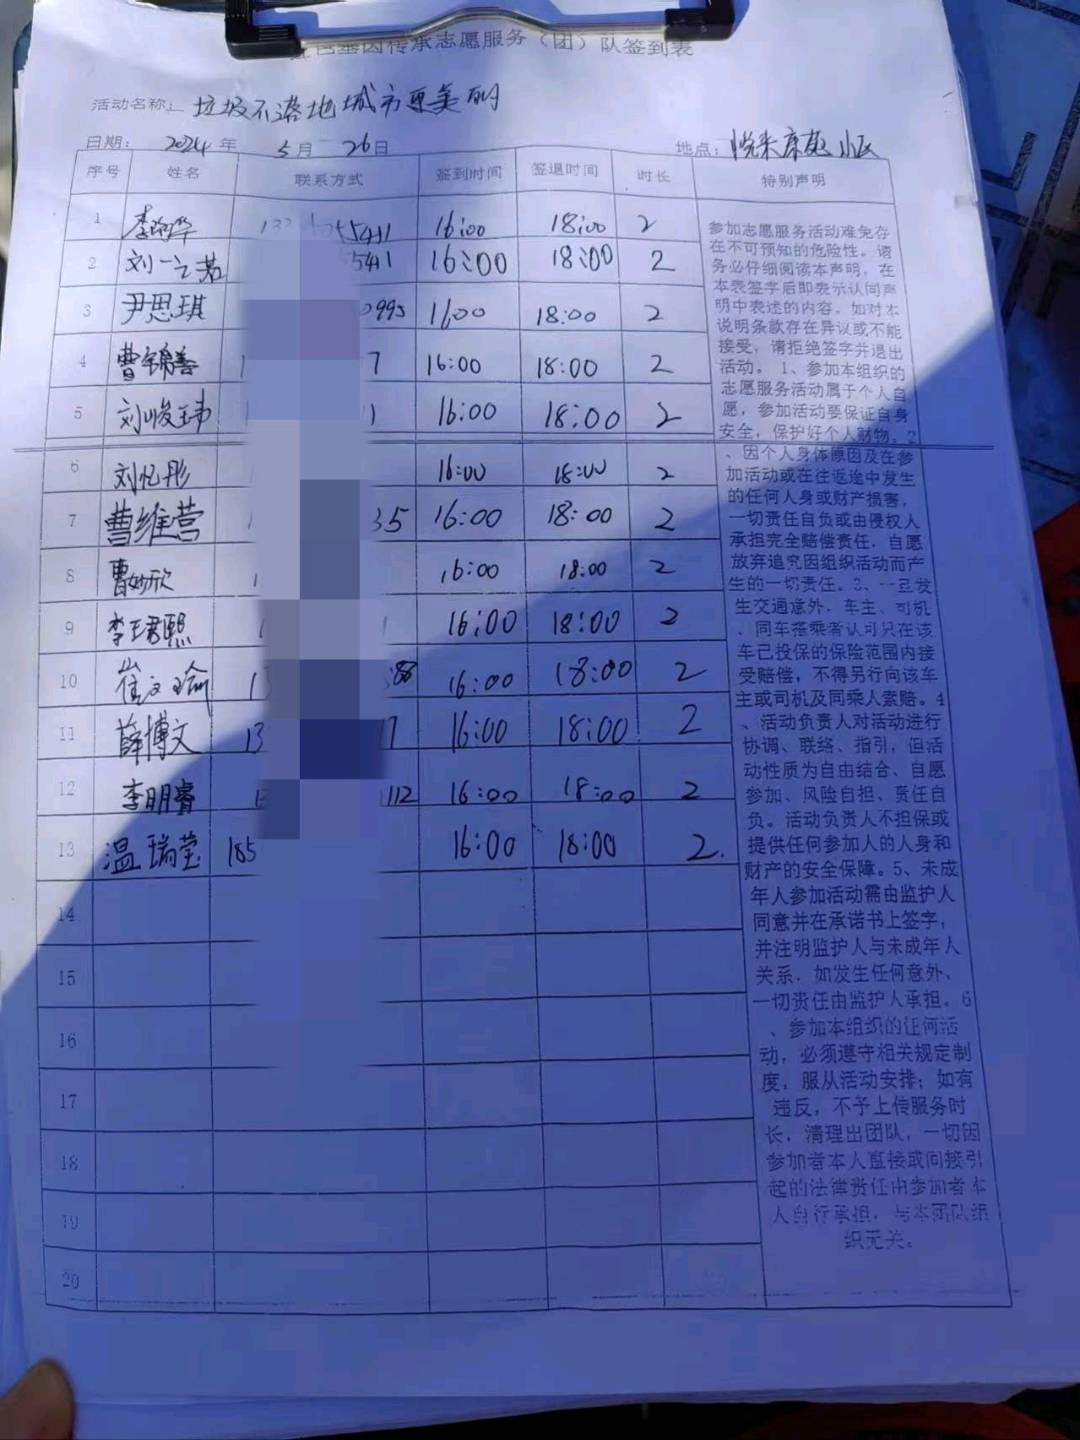 红色基因传承志愿服务（团）队签到表
活动名称: 垃圾不落地城市更美丽
日期: 2024 年 5 月 26 日 地点: 悦来康庭小区
序号 姓名 联系方式 签到时间 签退时间 时长 特别声明
1 16:00 18:00 2
2 刘一諾 5411 16:00 18:00 2
3 尹思琪 0993 16:00 18:00 2
4 曹锦善 1 7 16:00 18:00 2
5 刘峻玮 1 16:00 18:00 2
6 刘忆彤 16:00 18:00 2
7 曹维营 35 16:00 18:00 2
8 曹妙欣 16:00 18:00 2
9 李玥熙 16:00 18:00 2
10 崔文瑜 13 88 16:00 18:00 2
11 薛博文 13 7 16:00 18:00 2
12 李明睿 1 112 16:00 18:00 2
13 温瑞莹 185 16:00 18:00 2.
14
15
16
17
18
19
20
参加志愿服务活动难免存
在不可预知的危险性。请
务必仔细阅读本声明，在
本表签字后即表示认同声
明中表述的内容。如对本
说明条款存在异议或不能
接受，请拒绝签字并退出
活动。 1、参加本组织的
志愿服务活动属于个人自
愿，参加活动要保证自身
安全，保护好个人财物。2
、因个人身体原因及在参
加活动或在往返途中发生
的任何人身或财产损害，
一切责任自负或由侵权人
承担完全赔偿责任．自愿
放弃追究因组织活动而产
生的一切责任。3、一旦发
生交通意外．车主、司机
、同车搭乘者认可只在该
车已投保的保险范围内接
受赔偿，不得另行向该车
主或司机及同乘人索赔。4
、活动负责人对活动进行
协调、联络、指引，但活
动性质为自由结合、自愿
参加、风险自担、责任自
负。活动负责人不担保或
提供任何参加人的人身和
财产的安全保障。5、未成
年人参加活动需由监护人
同意并在承诺书上签字，
并注明监护人与未成年人
关系．如发生任何意外、
一切责任由监护人承担。6
、参加本组织的任何活
动，必须遵守相关规定制
度，服从活动安排；如有
违反，不予上传服务时
长．清理出团队．一切因
参加者本人直接或间接引
起的法律责任由参加者本
人自行承担．与本团队组
织无关。